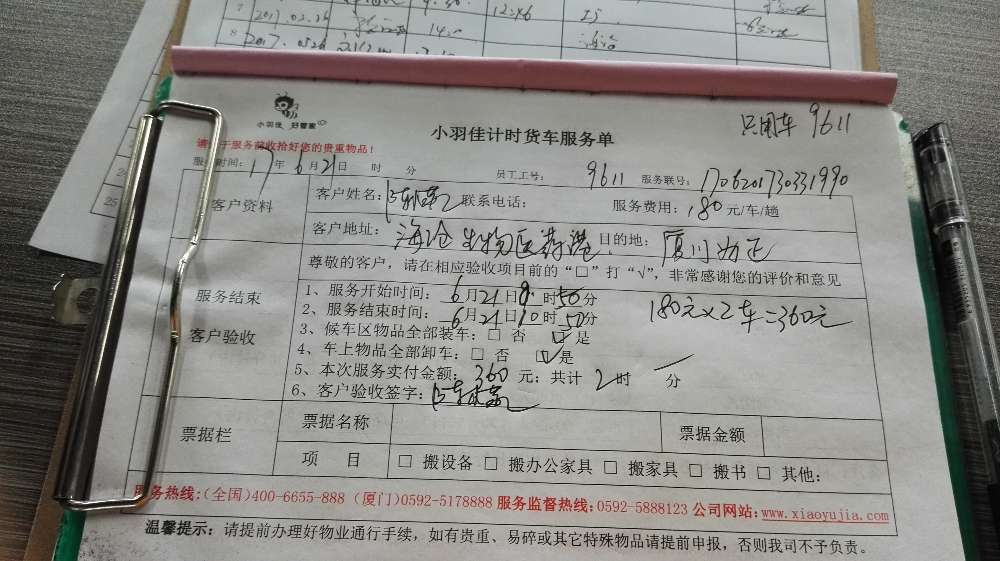 7 2017.02.26 12:46
8 2017.
小羽佳 好管家
小羽佳计时货车服务单
只用车 9611
请于服务前收拾好您的贵重物品！
服务时间：17年6月21日 时 分 员工工号：9611 服务联号：1706201730331990
客户资料
客户姓名： 联系电话： 服务费用：180元/车/趟
客户地址：海沧生物医药港 目的地：厦门
尊敬的客户，请在相应验收项目前的“□”打“√”，非常感谢您的评价和意见
服务结束
客户验收
1、服务开始时间：6月21日8时50分
2、服务结束时间：6月21日10时50分
180元×2车=360元
3、候车区物品全部装车：□ 否 ☑是
4、车上物品全部卸车：□ 否 ☑是
5、本次服务实付金额：360元；共计2时 分
6、客户验收签字：
票据栏
票据名称 票据金额
项 目 □ 搬设备 □ 搬办公家具 □ 搬家具 □ 搬书 □ 其他：
25
服务热线:(全国)400-6655-888 (厦门)0592-5178888 服务监督热线:0592-5888123 公司网站:www.xiaoyujia.com
温馨提示：请提前办理好物业通行手续，如有贵重、易碎或其它特殊物品请提前申报，否则我司不予负责。